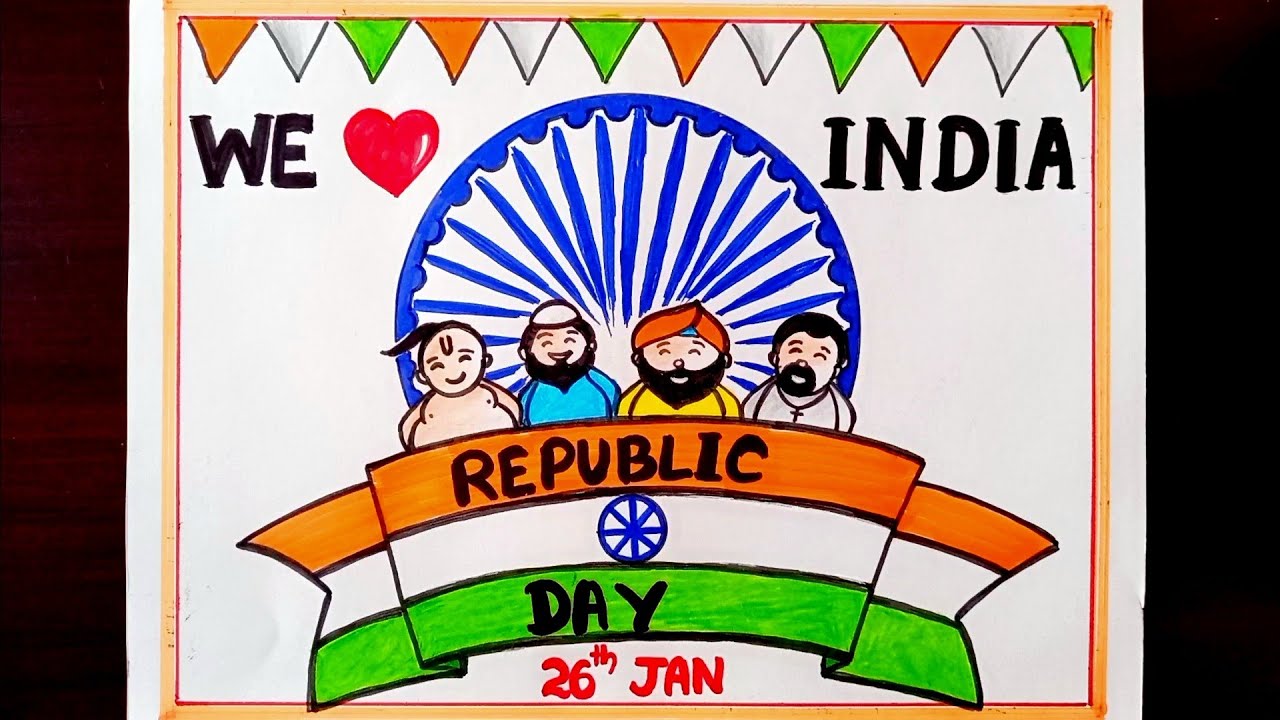 WE ❤ INDIA
REPUBLIC
DAY
26th JAN